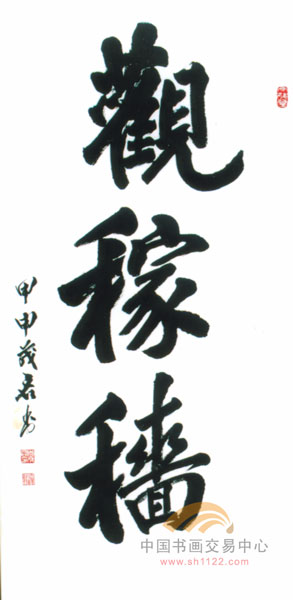 觀稼穡
甲申茂君書
中国书画交易中心
www.sh1122.com